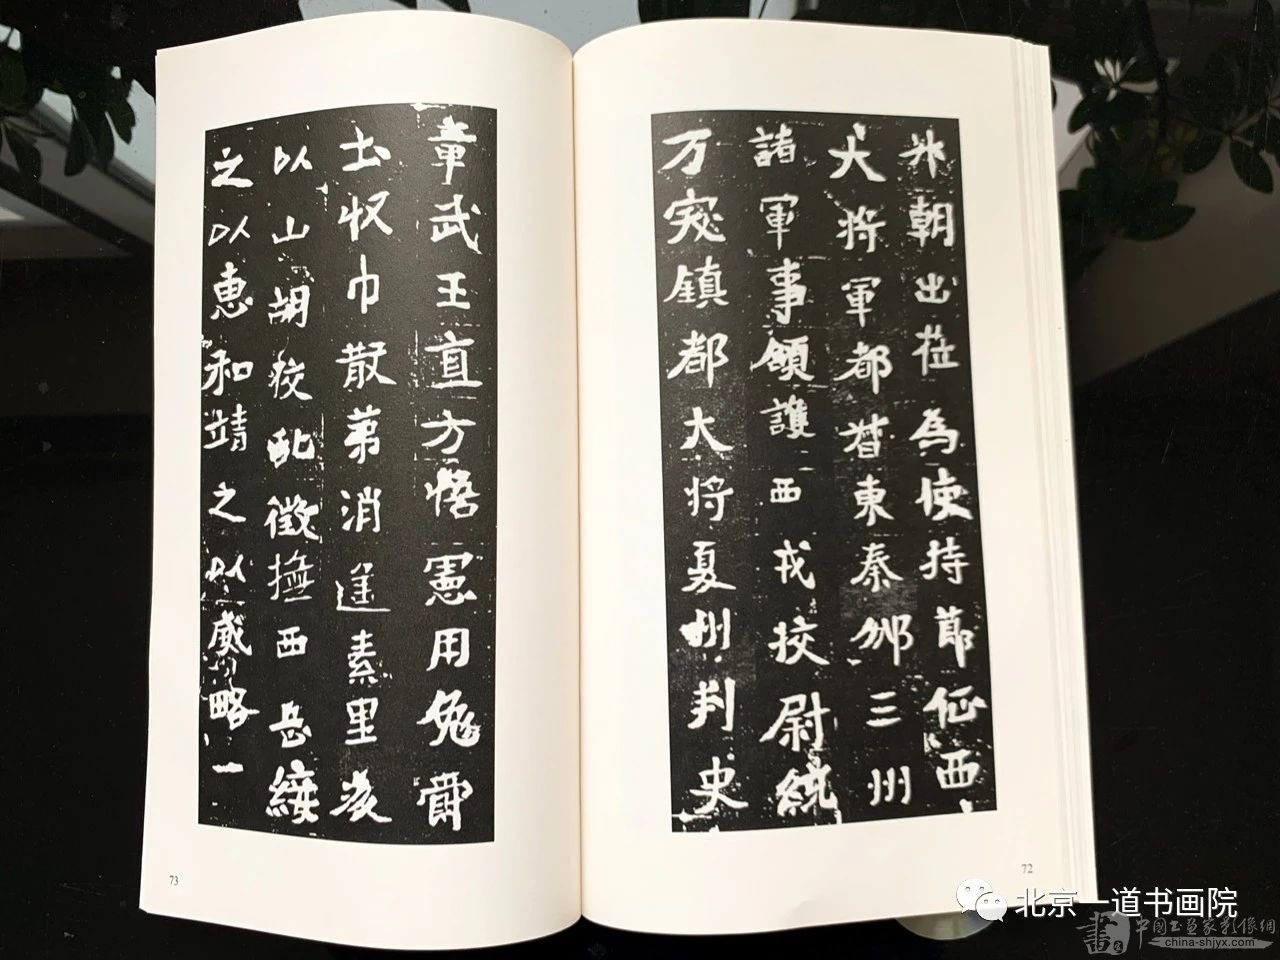 升朝出莅為使持節征西
大將軍都督東秦邠三州
諸軍事領護西戎挍尉統
万突鎮都大將夏州刺史
章武王直方悟憲用免爵
土收巾散第消遥素里後
以山胡狡亂徵撫西岳綏
之以惠和靖之以威略一
73
72
北京一道书画院
中國書畫家影像網
china-shjyx.com